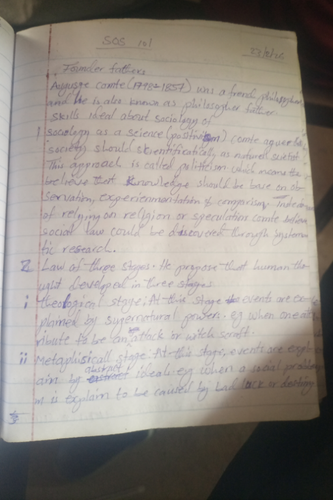 SOS 101
Founder fathers
Auguste comte (1798-1857) was a french philosopher
and He is also known as philosopher father
skills ideal about sociology of
1 sociology as a science (positivism) comte argue that
society should scientifically as natural
This approach is called which means the
believe that knowledge should be base on ob
servation, experimentation & comparison instead
of relying on religion or speculation comte believe
social law could be discovered through systema
tic research.
2 Law of three stages: He propose that human tho
ught develop in three stages
i Theological stage: At this stage events are ex
plained by supernatural power. eg when one
to be attack or witch craft.
ii Metaphysical stage: At this stage, events are expl
ain by abstract ideals eg when a social problem
is explain to be caused by bad luck or destiny